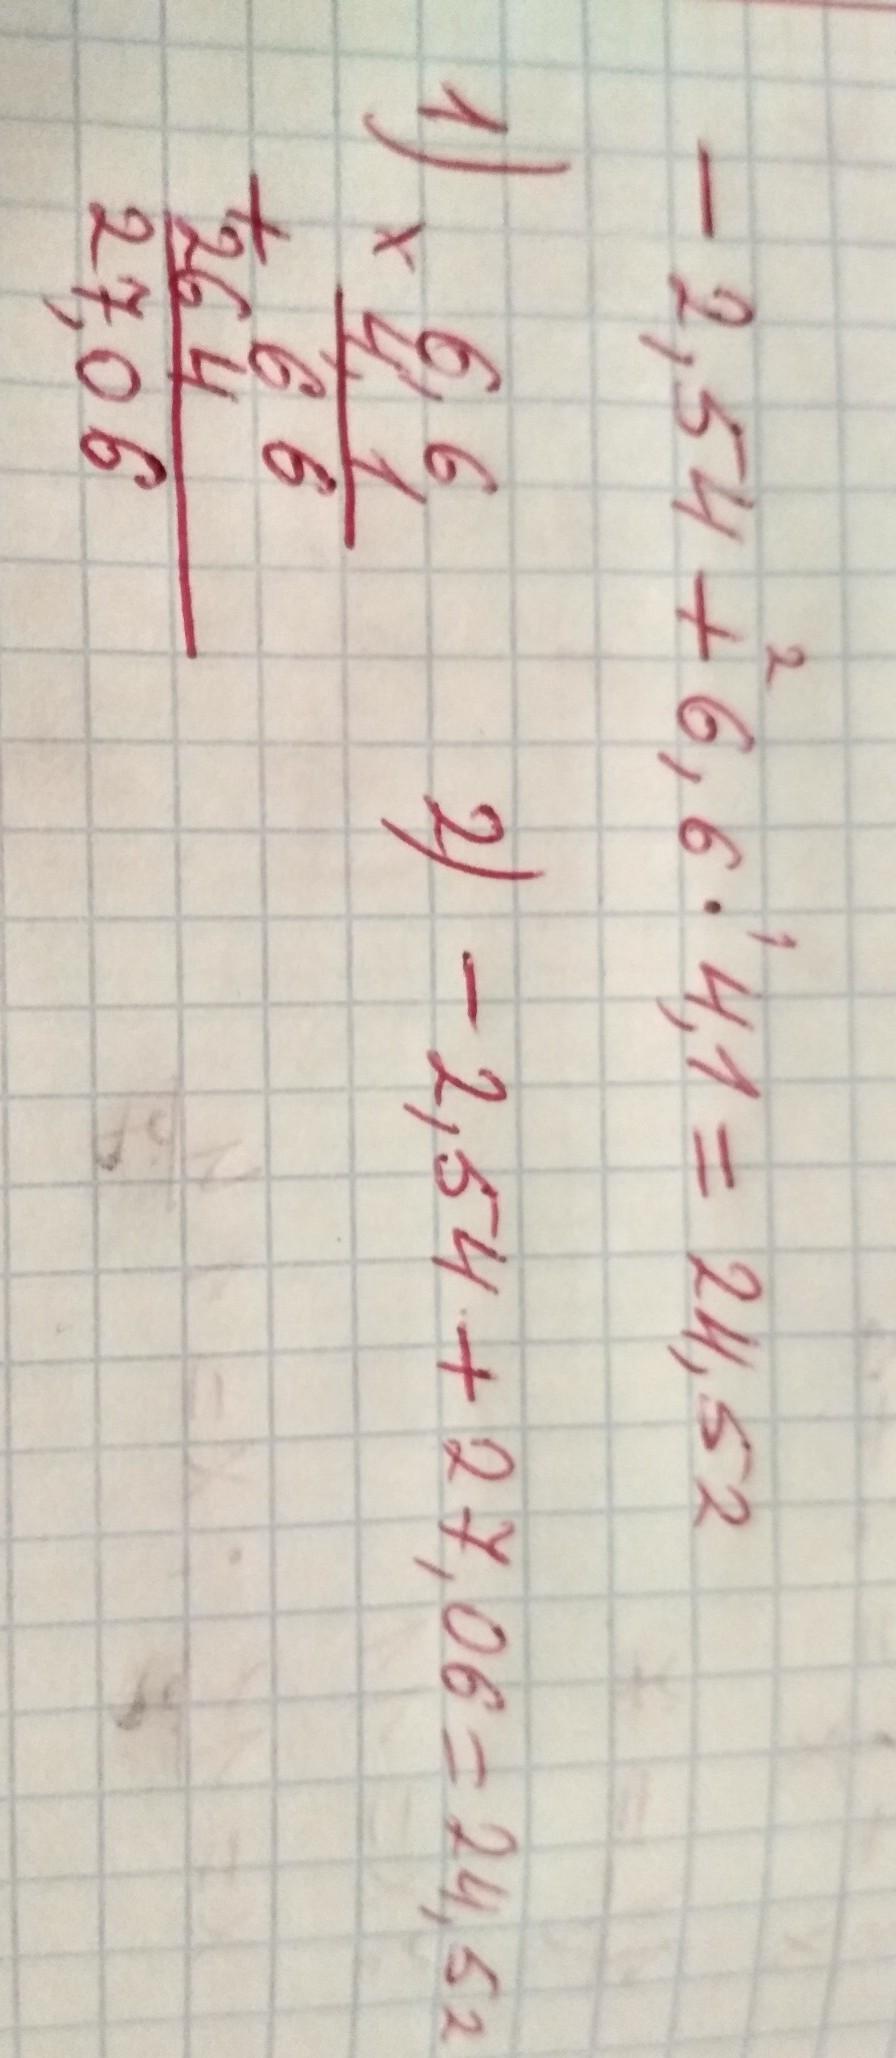 - 2,54 + 6,6 · 4,1 = 24,52
2 1
1) × 6,6
4,1
+ 6 6
26 4
27,06
2) - 2,54 + 27,06 = 24,52